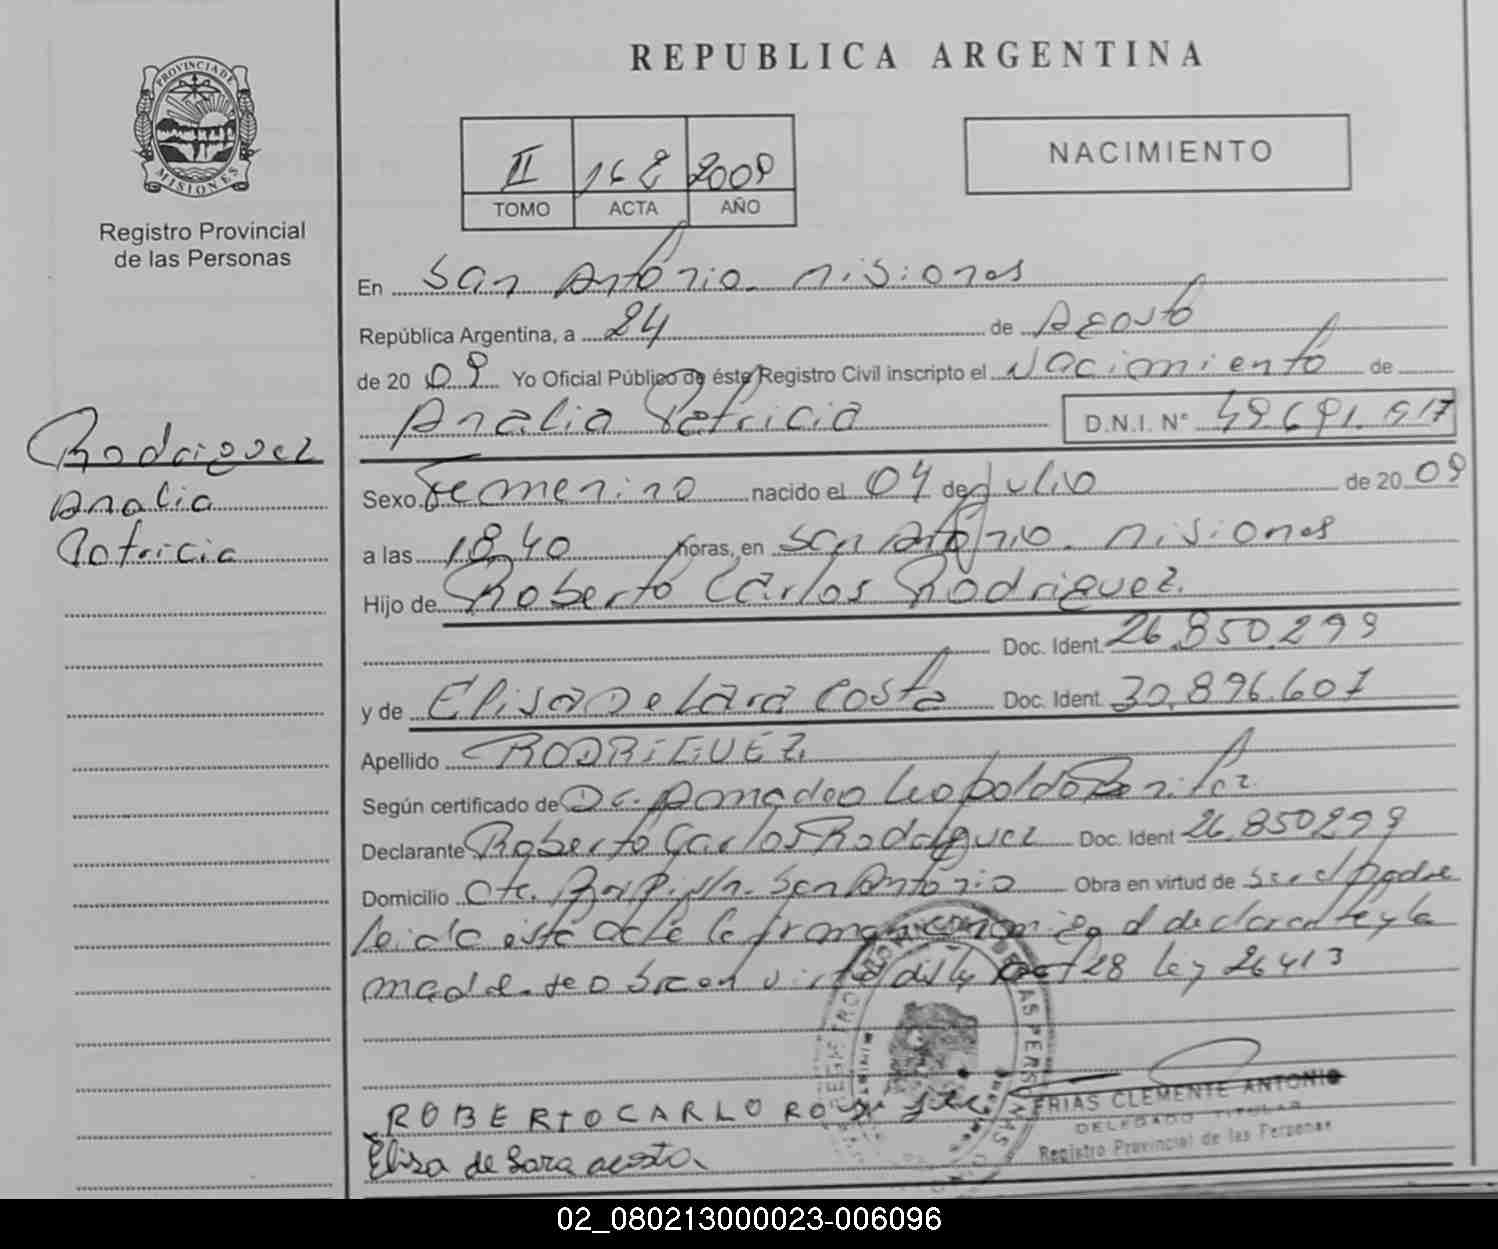 PROVINCIA DE MISIONES
Registro Provincial
de las Personas
Rodriguez
Analia
Patricia
REPUBLICA ARGENTINA
II 162 2009
TOMO ACTA AÑO
NACIMIENTO
En San Antonio. Misiones
República Argentina, a 24 de Agosto
de 20 09 Yo Oficial Público de éste Registro Civil inscripto el Nacimiento de
Analia Patricia D.N.I. N° 49.691.517
Sexo Femenino nacido el 04 de Julio de 20 09
a las 18,40 horas, en San Antonio. Misiones
Hijo de Roberto Carlos Rodriguez.
Doc. Ident. 26.850.299
y de Elisa De Lara Costa Doc. Ident. 30.896.601
Apellido RODRIGUEZ
Según certificado de Dr. Amadeo Leopoldo
Declarante Roberto Carlos Rodriguez Doc. Ident 26.850299
Domicilio San Antonio Obra en virtud de Ser el padre
leida esta acta la firman conmigo el declarante y la
madre. se obra en virtud del art 28 ley 26413
ROBERTO CARLO RO
Elisa de Lara acosta
FRIAS CLEMENTE ANTONIO
DELEGADO TITULAR
Registro Provincial de las Personas
02_080213000023-006096